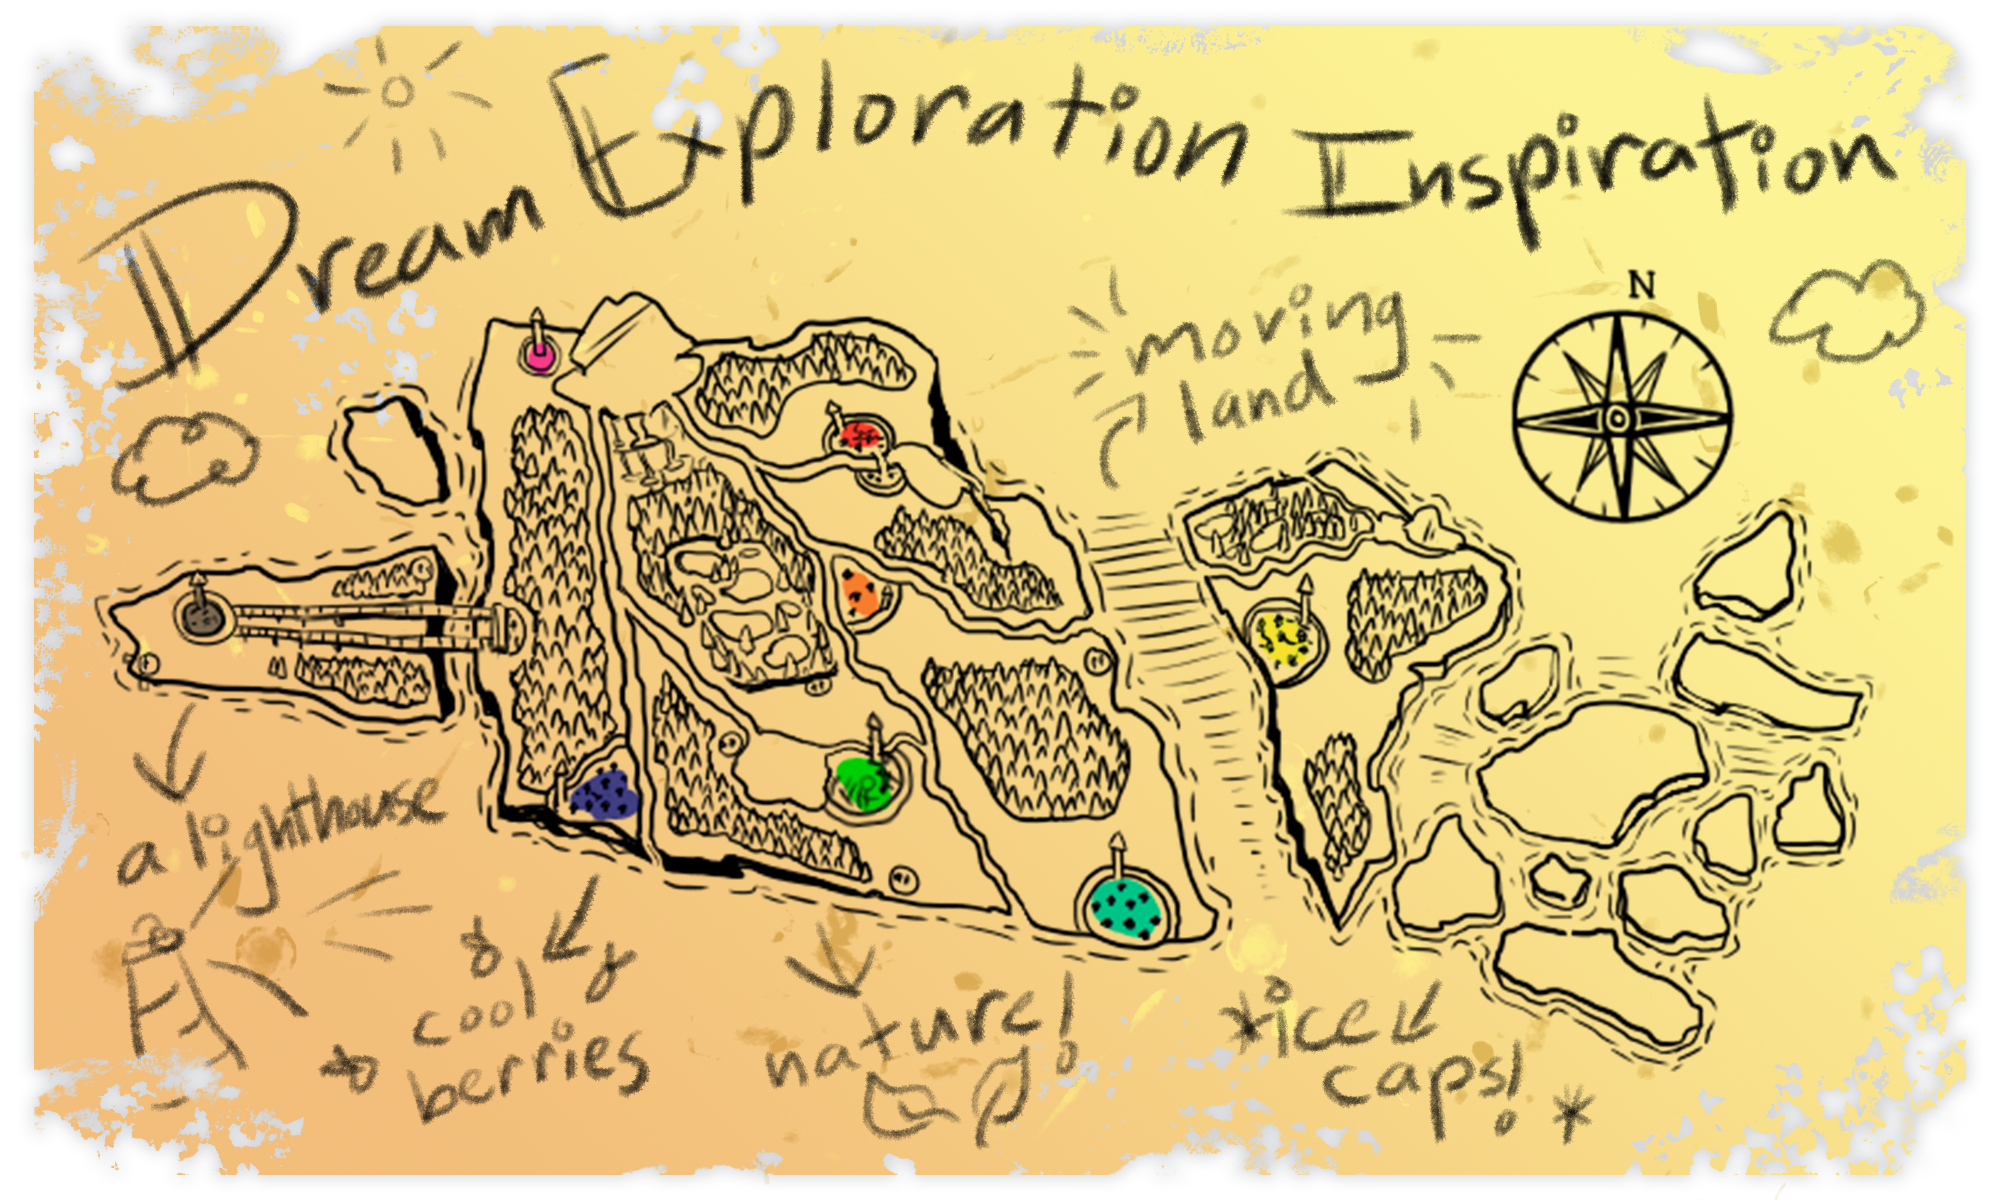 Dream Exploration Inspiration
N
moving
land
a lighthouse
cool
berries
nature!
ice
caps!